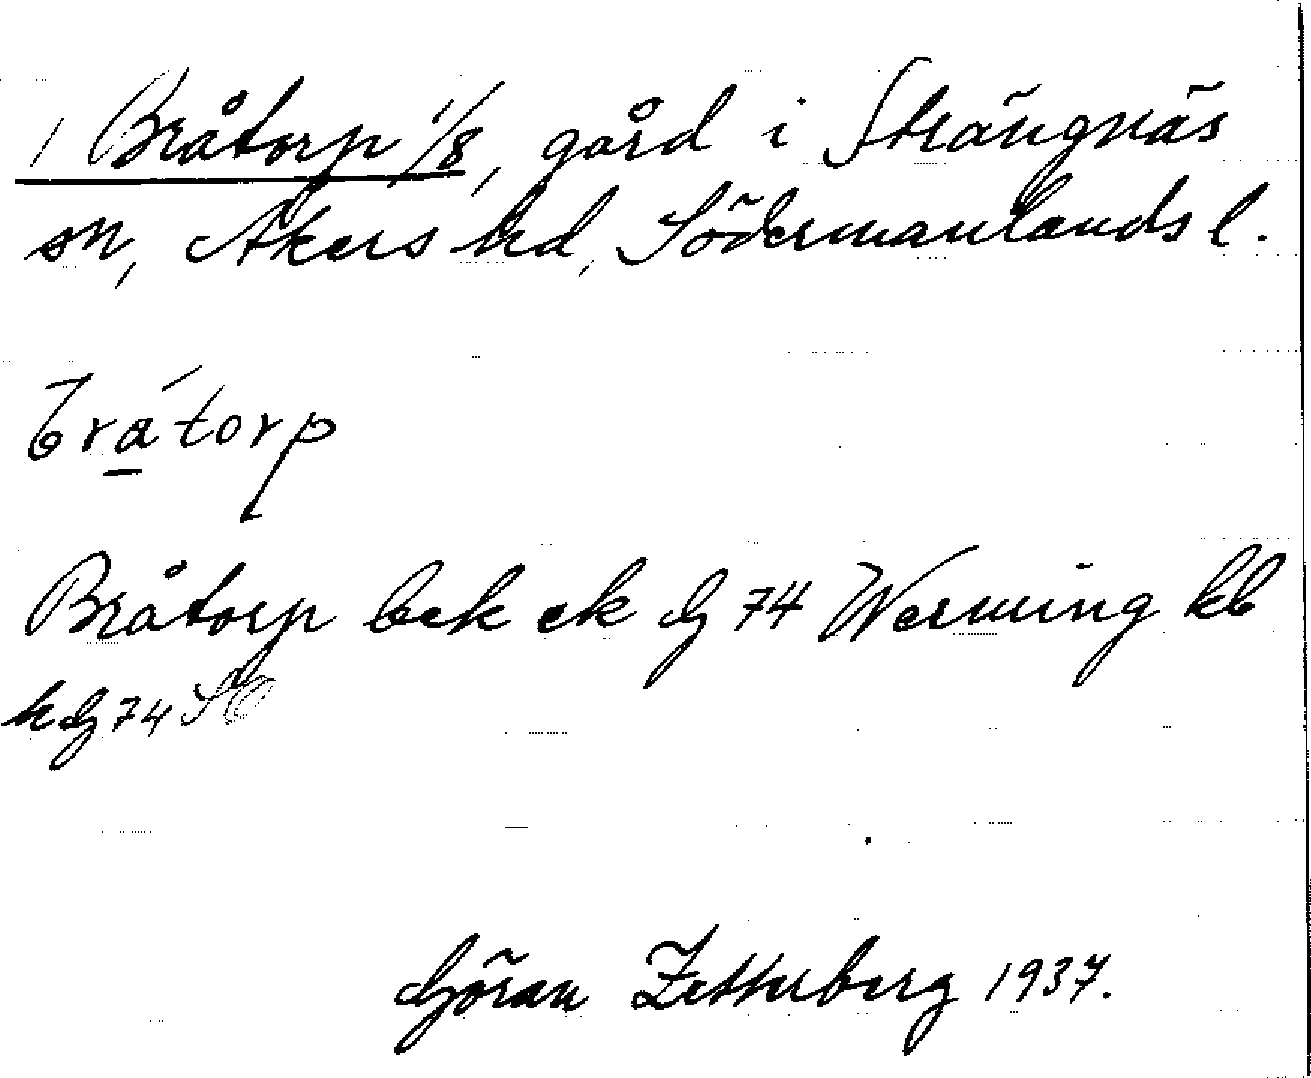 1 Bråtorp 1/8, gård i Strängnäs
sn, Åkers hd, Södermanlands l.
brátorp
Bråtorp bek ek G 74 Werming kb
k G 74 SO
Göran Zetterberg 1937.